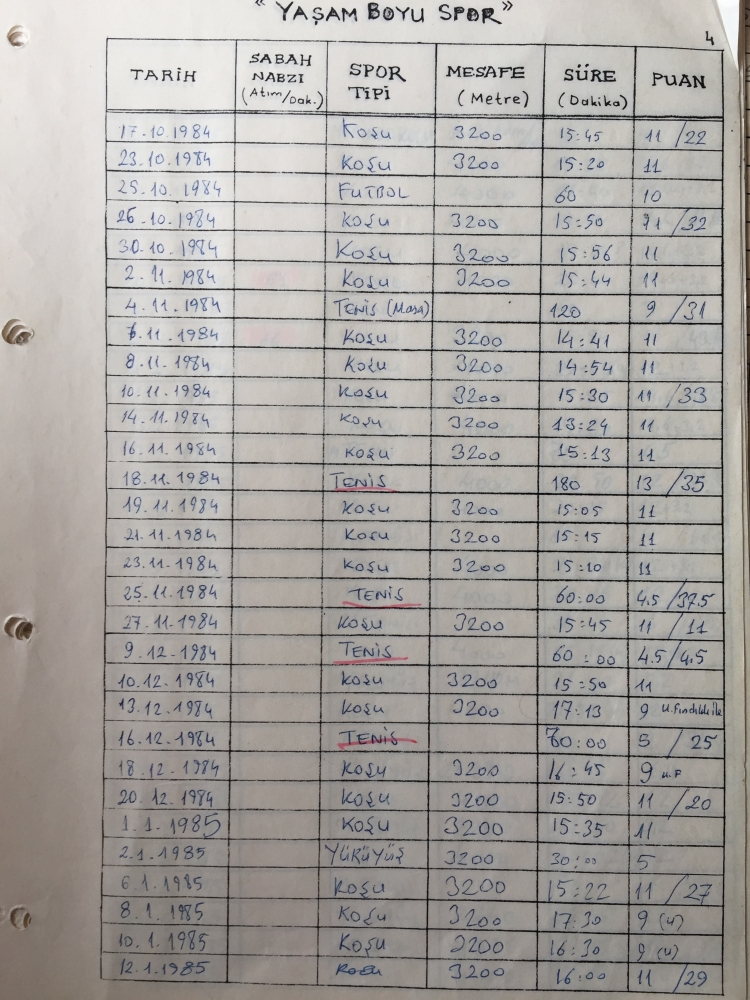 "YAŞAM BOYU SPOR"
4
TARİH SABAH NABZI (Atım/Dak.) SPOR TİPİ MESAFE (Metre) SÜRE (Dakika) PUAN
17.10.1984 Koşu 3200 15:45 11 /22
23.10.1984 Koşu 3200 15:20 11
25.10.1984 FUTBOL 60 10
26.10.1984 Koşu 3200 15:50 11 /32
30.10.1984 Koşu 3200 15:56 11
2.11.1984 Koşu 3200 15:44 11
4.11.1984 TENİS (Masa) 120 9 /31
6.11.1984 Koşu 3200 14:41 11
8.11.1984 Koşu 3200 14:54 11
10.11.1984 Koşu 3200 15:30 11 /33
14.11.1984 Koşu 3200 13:24 11
16.11.1984 Koşu 3200 15:13 11
18.11.1984 TENİS 180 13 /35
19.11.1984 Koşu 3200 15:05 11
21.11.1984 Koşu 3200 15:15 11
23.11.1984 Koşu 3200 15:10 11
25.11.1984 TENİS 60:00 4.5 /37.5
27.11.1984 Koşu 3200 15:45 11 /11
9.12.1984 TENİS 60:00 4.5/4.5
10.12.1984 Koşu 3200 15:50 11
13.12.1984 Koşu 3200 17:13 9 U.Fındıklı ile
16.12.1984 TENİS :00 5 / 25
18.12.1984 Koşu 3200 16:45 9 U.F
20.12.1984 Koşu 3200 15:50 11 /20
1.1.1985 Koşu 3200 15:35 11
2.1.1985 YÜRÜYÜŞ 3200 30:00 5
6.1.1985 Koşu 3200 15:22 11 /27
8.1.1985 Koşu 3200 17:30 9 (U)
10.1.1985 Koşu 3200 16:30 9 (U)
12.1.1985 Koşu 3200 16:00 11 /29